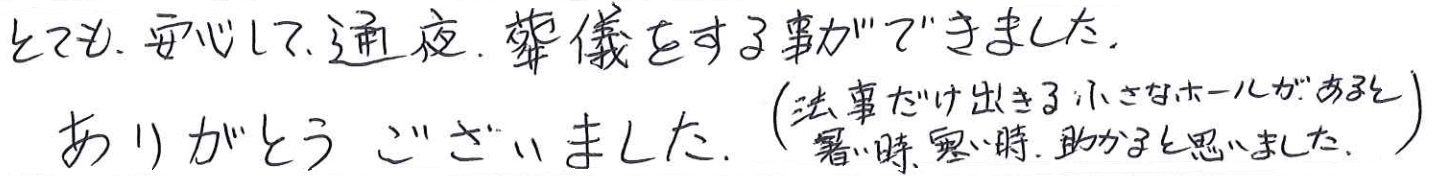 とても、安心して、通夜、葬儀をする事ができました。
ありがとうございました。
(法事だけ出きる小さなホールがあると
暑い時、寒い時、助かると思いました。)